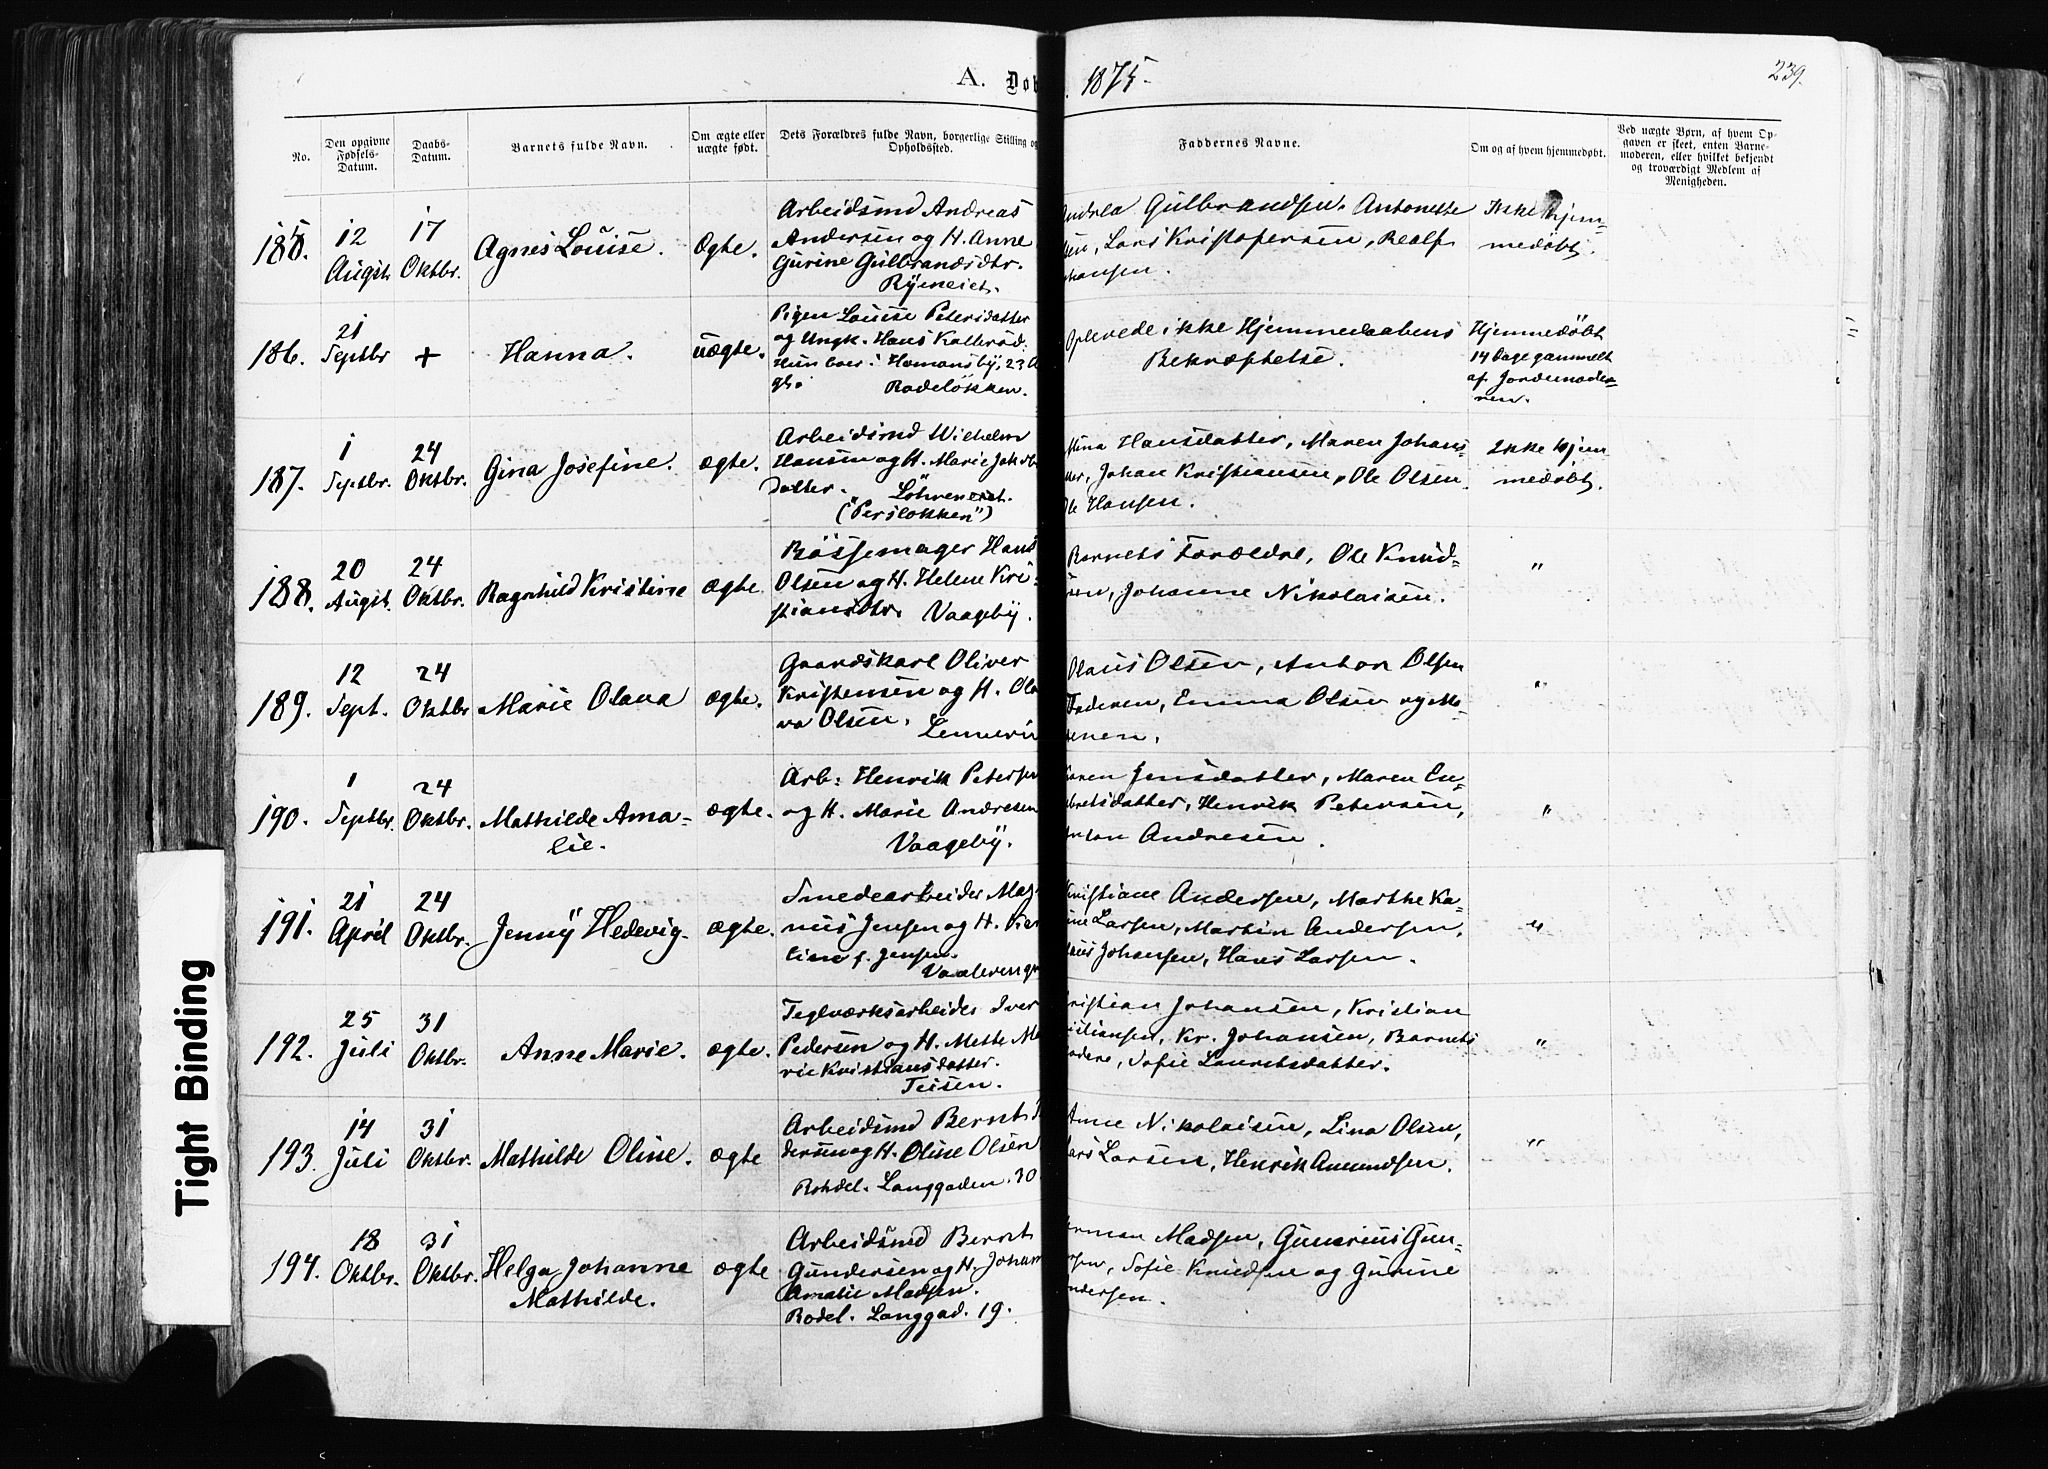 A. Døb 1875.
239.
No.
Den opgivne Fødsels-Datum.
Daabs-Datum.
Barnets fulde Navn.
Om ægte eller uægte født.
Dets Forældres fulde Navn, borgerlige Stilling og Opholdssted.
Faddernes Navne.
Om og af hvem hjemmedøbt.
Ved uægte Børn, af hvem Op-
gaven er skeet, enten Barne-
moderen, eller hvilket bekjendt
og troværdigt Medlem af
Menigheden.
185.
12 Augst.
17 Oktbr.
Agnes Louise.
Ægte.
Arbeidsmd Andreas
Andersen og H. Anne
Gurine Gulbrandsdtr.
Ryeneiet.
Gulbrandsen. Antonette
Lars Kristofersen, Realf
hansen.
Ikke hjem-
medøbt.
186.
21 Septbr
+
Hanna.
uægte.
Pigen Louise Petersdatter
og Ungk. Hans Kallerød.
Hun boer: Homansby, 23
Rodeløkken.
Oplevede ikke Hjemmedaabens
Bekræftelse.
Hjemmedøbt
14 Dage gammelt
af Jordemode-
ren.
187.
1 Septbr.
24 Oktbr.
Gina Josefine.
ægte.
Arbeidsmd Wilhelm
Hansen og H. Marie Jakob
datter.
("Persløkken")
Hansdatter, Maren Johans-
Johan Kristiansen, Ole Olsen.
Hansen.
Ikke hjem
medøbt.
188.
20 Augst.
24 Oktbr.
Ragnhild Kristine
ægte
Bøssemager Hans
Olsen og H. Helene Kri-
stiansdtr. Vaageby.
Barnets Forældre, Ole Knud-
sen, Johanne Nikolaisen.
"
189.
12 Sept.
24 Oktbr
Marie Olava
ægte.
Gaardskarl Oliver
Kristensen og H. Ola
va Olsen.
Olaus Olsen, Anton Olsen
Faderen, Emma Olsen og Mo-
deren.
"
190.
1 Septbr.
24 Oktbr.
Mathilde Ama-
lie.
ægte.
Arb: Henrik Petersen
og H. Marie Andresen
Vaageby.
Karen Jensdatter, Maren En-
bretsdatter, Henrik Petersen,
Anton Andresen.
"
191.
21 April
24 Oktbr.
Jenny Hedevig.
ægte.
Smedearbeider Mag
nus Jensen og H.
line f. Jensen.
Vaalereng
Kristiane Andersen, Marthe Ka-
rine Larsen, Martin Andersen,
Johansen, Hans Larsen.
"
192.
25 Juli
31 Oktbr.
Anne Marie.
ægte.
Teglværksarbeider Iver
Pedersen og H. Mette Ma
rie Kristiansdatter.
Teisen.
Kristian Johansen, Kristian
Kristiansen, Kr. Johansen, Barnets
Sofie Lauritsdatter.
"
193.
14 Juli
31 Oktbr.
Mathilde Oline.
ægte
Arbeidsmd Bernt
dersen og H. Oline Olsen
Rohdel. Langgaden. 30
Anne Nikolaisen, Lina Olsen,
Lars Larsen, Henrik Amundsen.
"
194.
18 Oktbr.
31 Oktbr.
Helga Johanne
Mathilde.
ægte
Arbeidsmd Bernt
Gundersen og H. Johan
Amalie Madsen.
Rodel. Langgad. 19.
Herman Madsen, Gunerius Gun-
dersen, Sofie Knudsen og Gurine
Gundersen.
Tight Binding